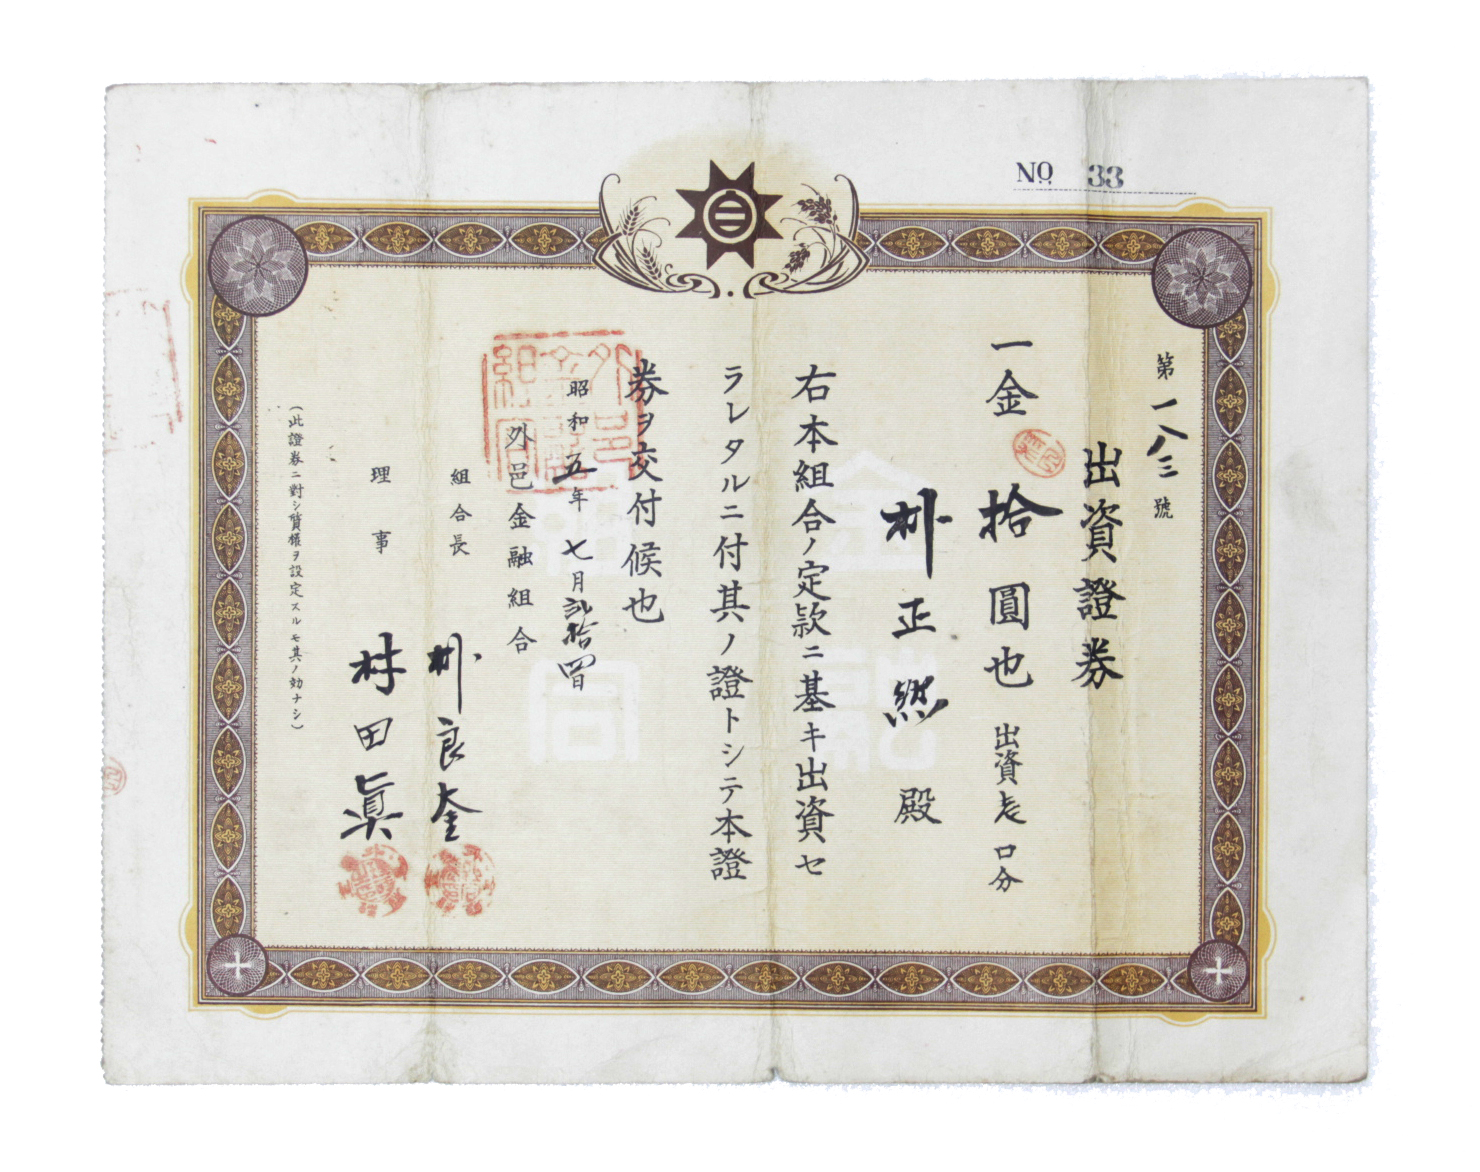 No 33
第一八三號
出資證券
一金拾圓也 出資壱口分
朴正然殿
右本組合ノ定款ニ基キ出資セ
ラレタルニ付其ノ證トシテ本證
券ヲ交付候也
昭和五年七月貳拾四日
外邑金融組合
組合長 朴良奎
理事 村田眞
(此證券ニ對シ質權ヲ設定スルモ其ノ効ナシ)